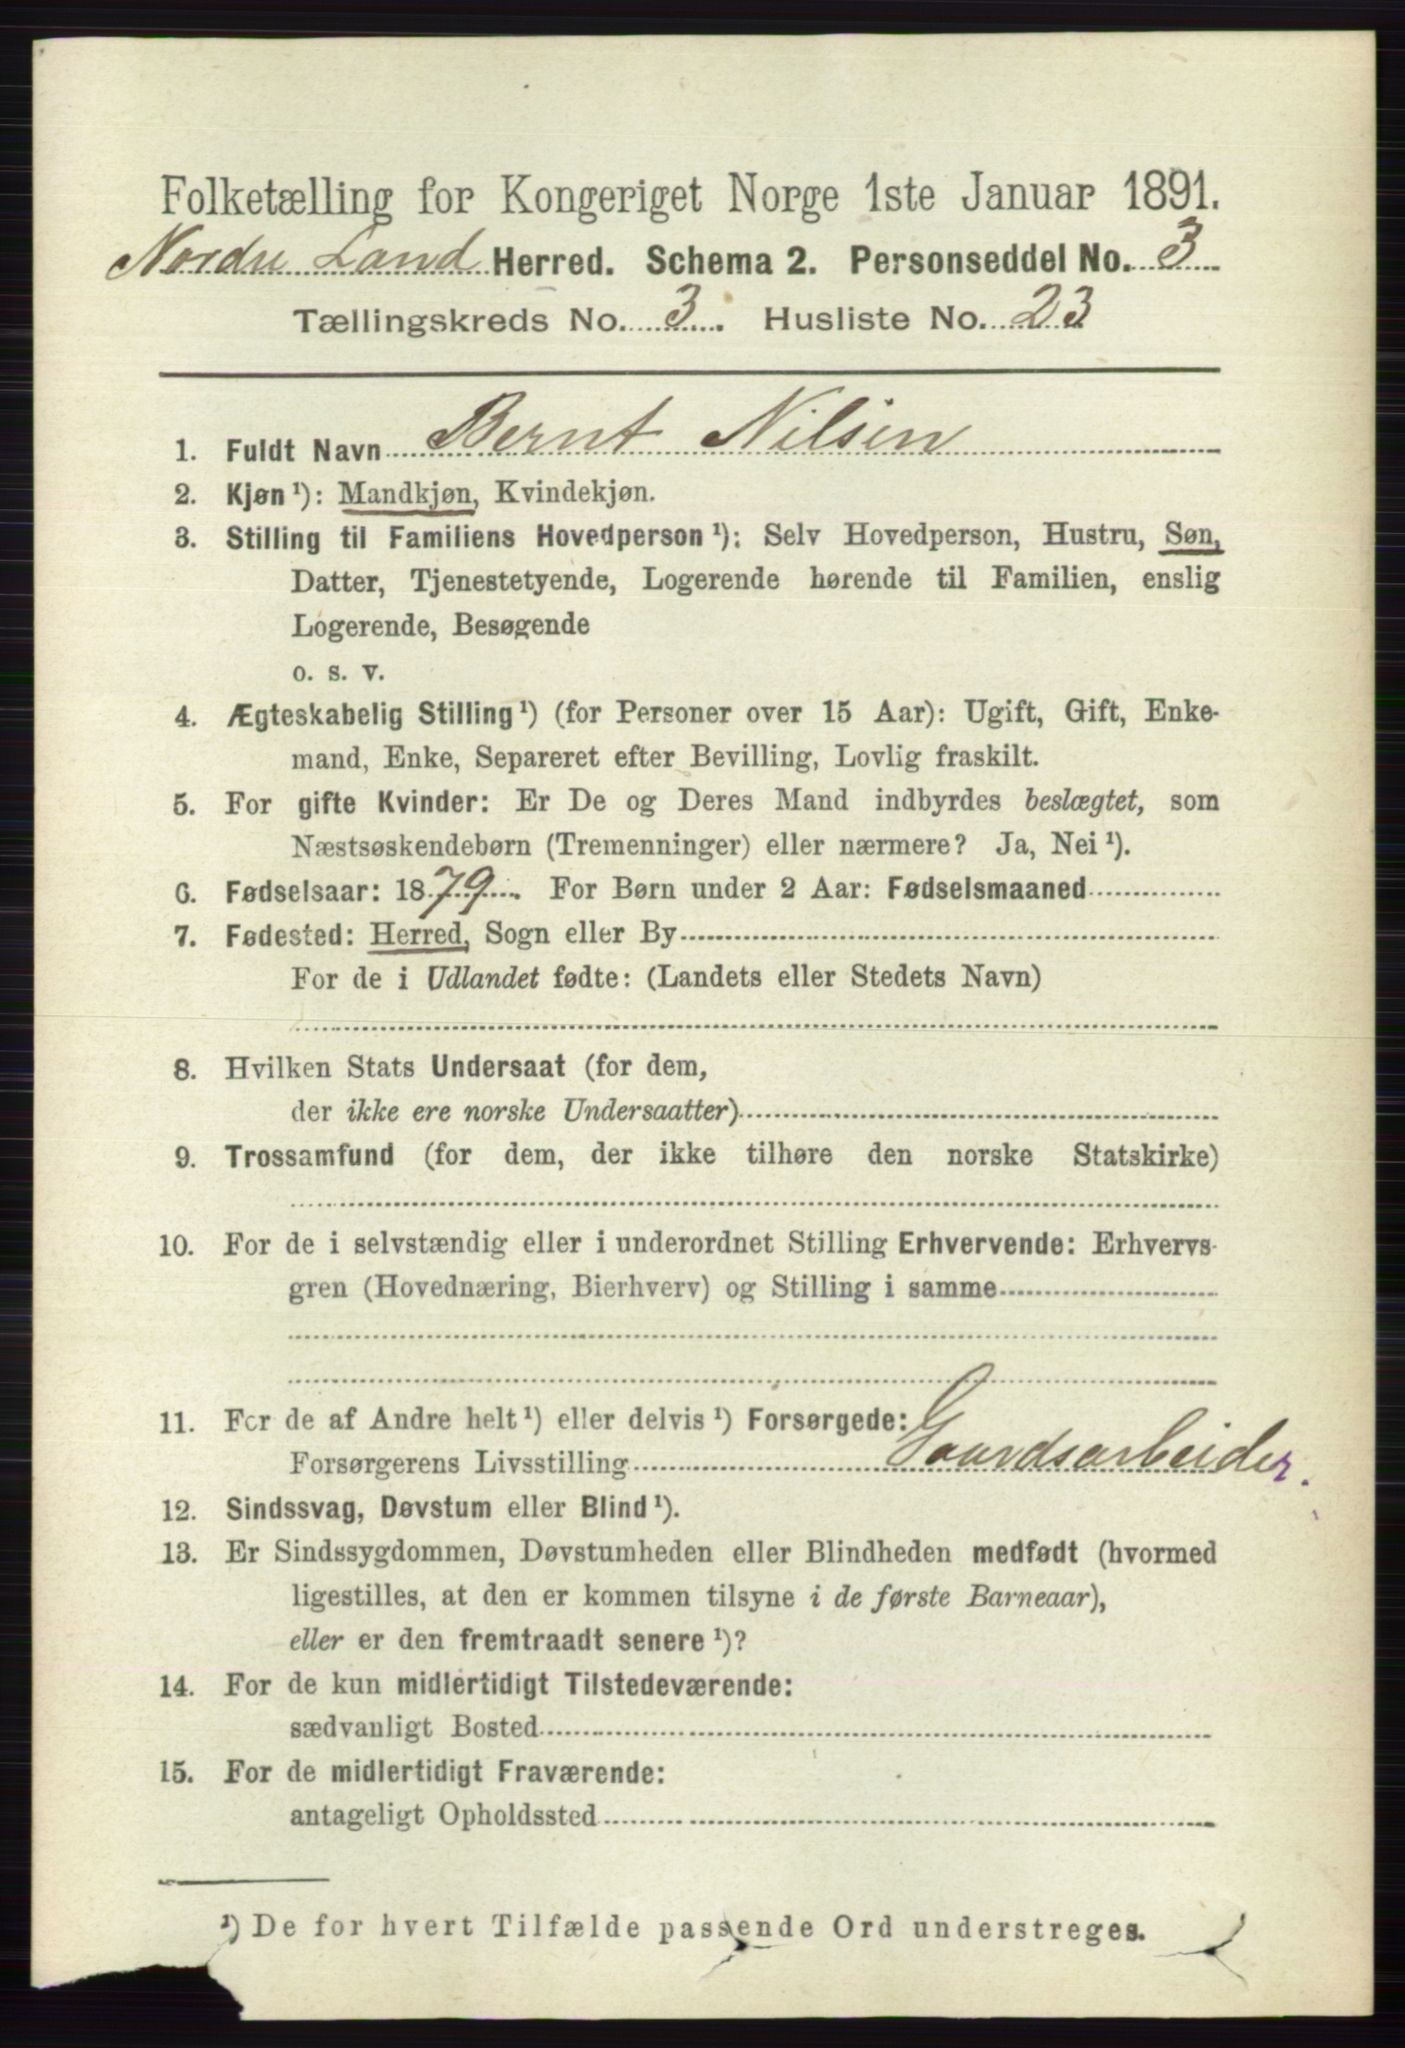 Folketælling for Kongeriget Norge 1ste Januar 1891.
Nordre Land Herred. Schema 2. Personseddel No. 3
Tællingskreds No. 3. Husliste No. 23
1. Fuldt Navn Bernt Nilsen
2. Kjøn ¹): Mandkjøn, Kvindekjøn.
3. Stilling til Familiens Hovedperson ¹): Selv Hovedperson, Hustru, Søn,
Datter, Tjenestetyende, Logerende hørende til Familien, enslig
Logerende, Besøgende
o. s. v.
4. Ægteskabelig Stilling ¹) (for Personer over 15 Aar): Ugift, Gift, Enke-
mand, Enke, Separeret efter Bevilling, Lovlig fraskilt.
5. For gifte Kvinder: Er De og Deres Mand indbyrdes beslægtet, som
Næstsøskendebørn (Tremenninger) eller nærmere? Ja, Nei ¹).
6. Fødselsaar: 1879. For Børn under 2 Aar: Fødselsmaaned
7. Fødested: Herred, Sogn eller By
For de i Udlandet fødte: (Landets eller Stedets Navn)
8. Hvilken Stats Undersaat (for dem,
der ikke ere norske Undersaatter)
9. Trossamfund (for dem, der ikke tilhøre den norske Statskirke)
10. For de i selvstændig eller i underordnet Stilling Erhvervende: Erhvervs-
gren (Hovednæring, Bierhverv) og Stilling i samme
11. For de af Andre helt ¹) eller delvis ¹) Forsørgede:
Forsørgerens Livsstilling Gaardsarbeider.
12. Sindssvag, Døvstum eller Blind ¹).
13. Er Sindssygdommen, Døvstumheden eller Blindheden medfødt (hvormed
ligestilles, at den er kommen tilsyne i de første Barneaar),
eller er den fremtraadt senere ¹)?
14. For de kun midlertidigt Tilstedeværende:
sædvanligt Bosted
15. For de midlertidigt Fraværende:
antageligt Opholdssted
¹) De for hvert Tilfælde passende Ord understreges.